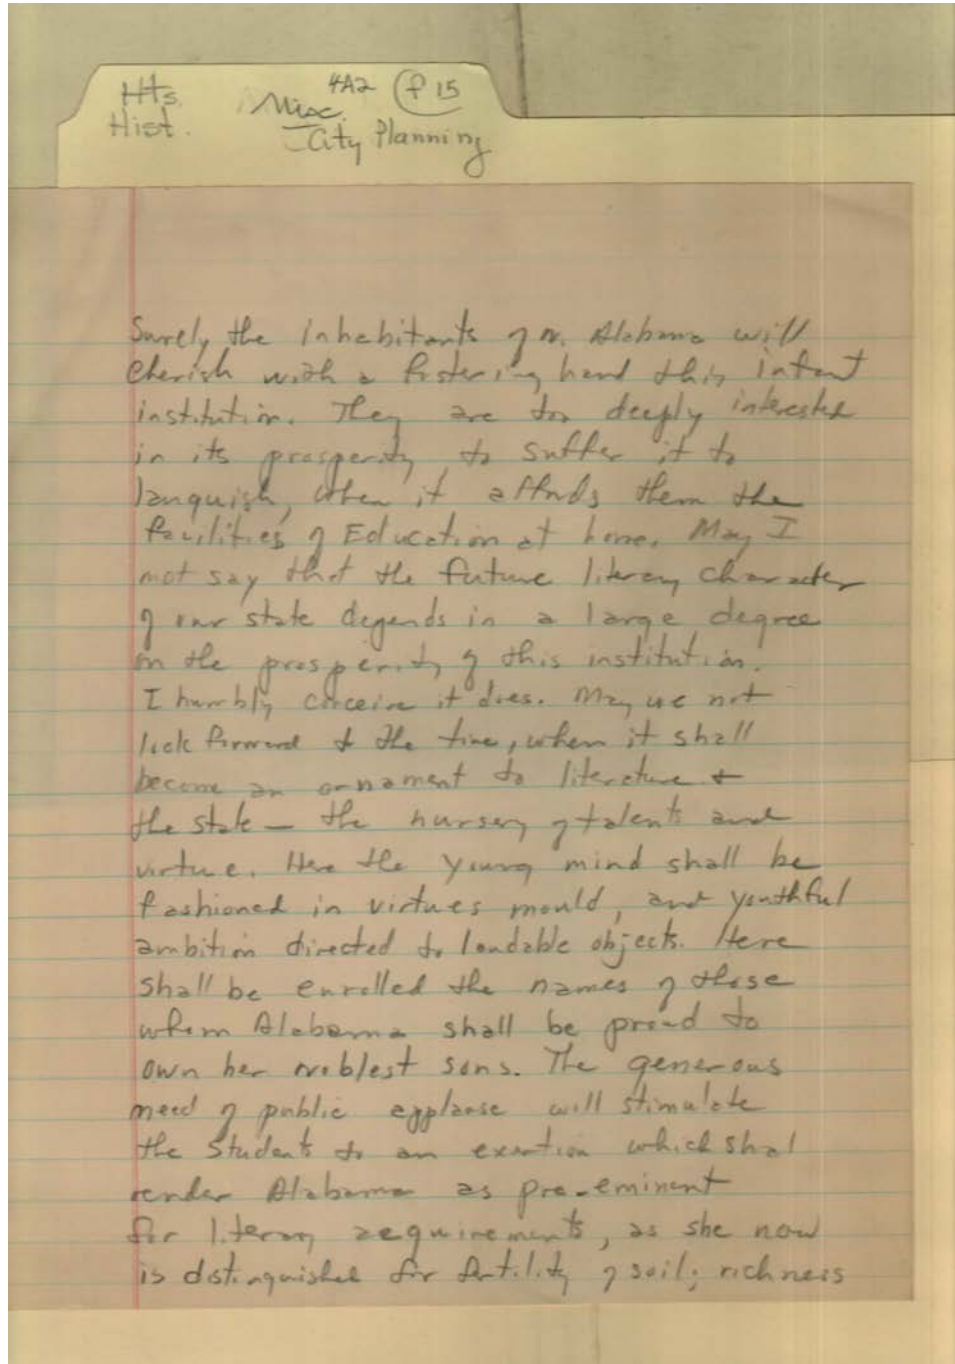 Hts.
Hist.
4A2 f 15
Misc.
City Planning
Surely the Inhabitants of N. Alabama will
cherish with a fostering hand this infant
institution. They are too deeply interested
in its prosperity to suffer it to
languish, when it affords them the
facilities of Education at home. May I
not say that the future literary character
of our state depends in a large degree
on the prosperity of this institution.
I humbly conceive it does. May we not
look forward to the time, when it shall
become an ornament to literature &
the state — the nursery of talents and
virtue. Here the young mind shall be
fashioned in virtues mould, and youthful
ambition directed to laudable objects. Here
shall be enrolled the names of those
whom Alabama shall be proud to
own her noblest sons. The generous
meed of public applause will stimulate
the Students to an exertion which shal
render Alabama as pre-eminent
for literary acquirements, as she now
is distinguished for fertility of soil; richness